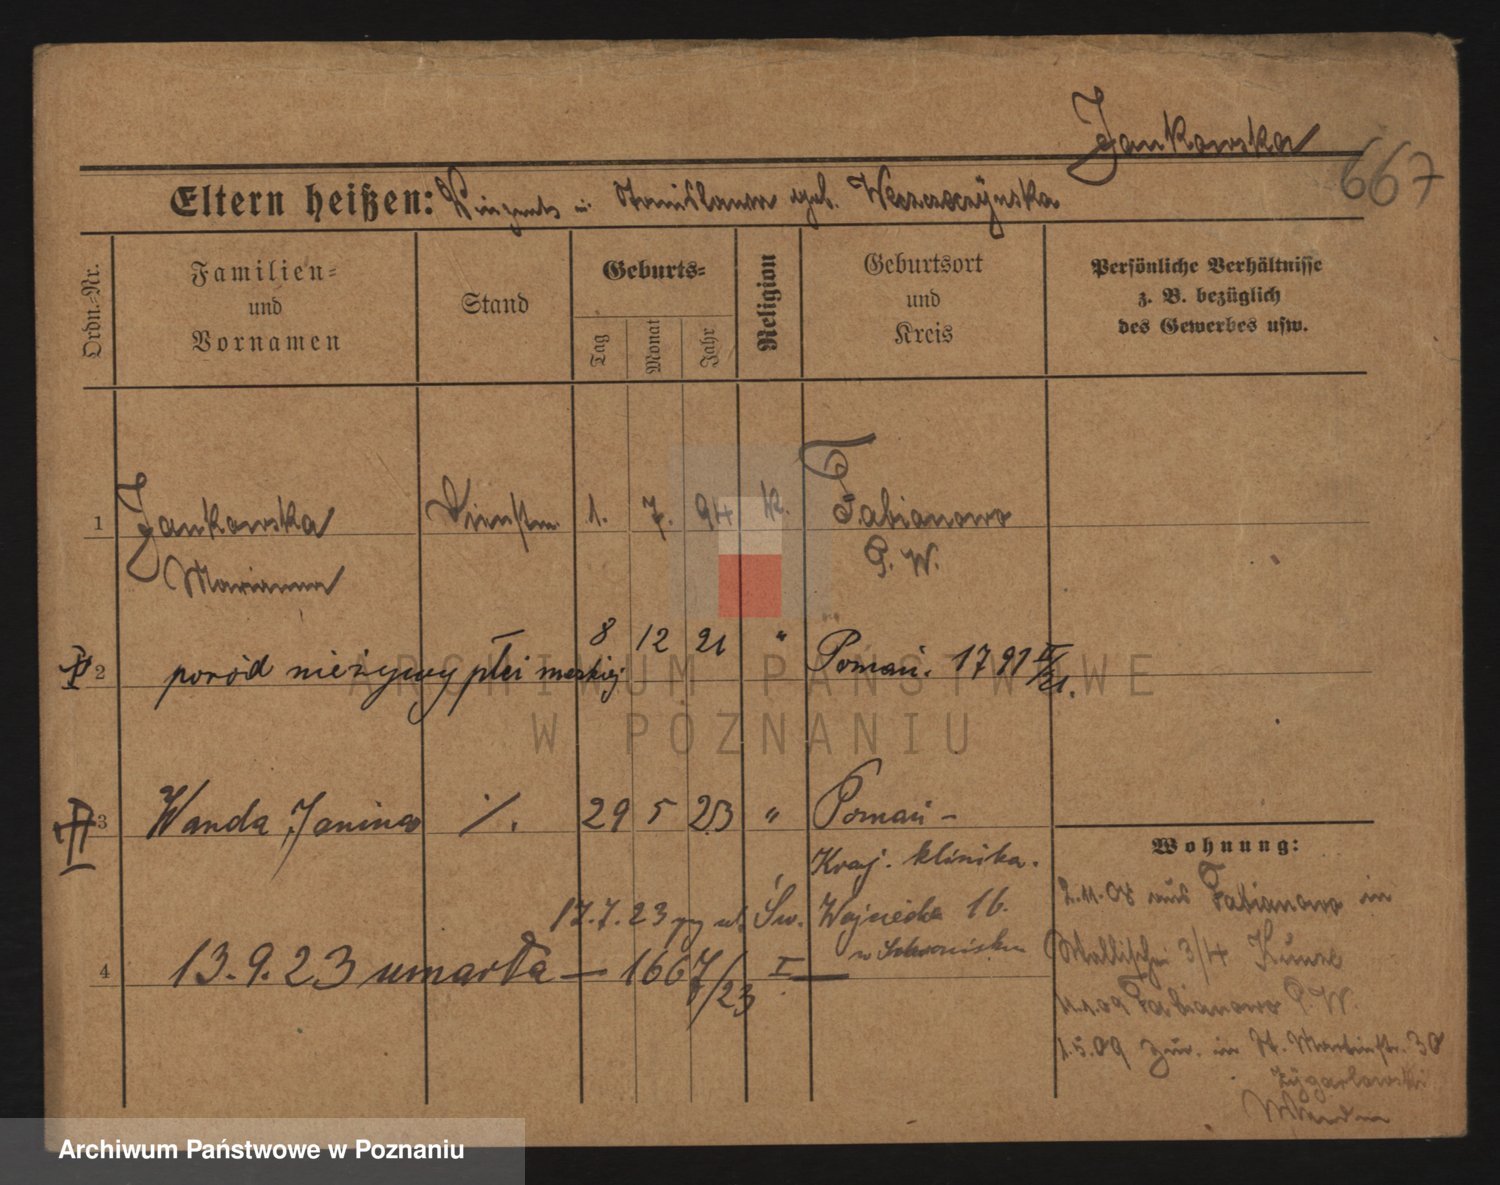 Jankowska
667
Eltern heißen: Vinzents u. Stanislawa geb.
Ordn.-Nr.
Familien-
und
Vornamen
Stand
Geburts-
Tag
Monat
Jahr
Religion
Geburtsort
und
Kreis
Persönliche Verhältnisse
z. B. bezüglich
des Gewerbes usw.
1 Jankowska Dienstm. 1. 7. 94 k. Fabianowo
Marianna P. W.
2 poród nieżywy płci męskiej 8 12 21 " Poznań. 1791 II/21.
3 Wanda Janina ./. 29 5 23 " Poznań -
Kraj. klinika.
17.7.23 ul. Św. Wojciecha 16.
4 13.9.23 umarła — 1667/23 I —
Wohnung:
2.11.08 aus Fabianowo in
Wallischei 3/4
11.1.09 Fabianowo P. W.
1.5.09 zur. in St. Martinstr. 30
ARCHIWUM PAŃSTWOWE
W POZNANIU
Archiwum Państwowe w Poznaniu